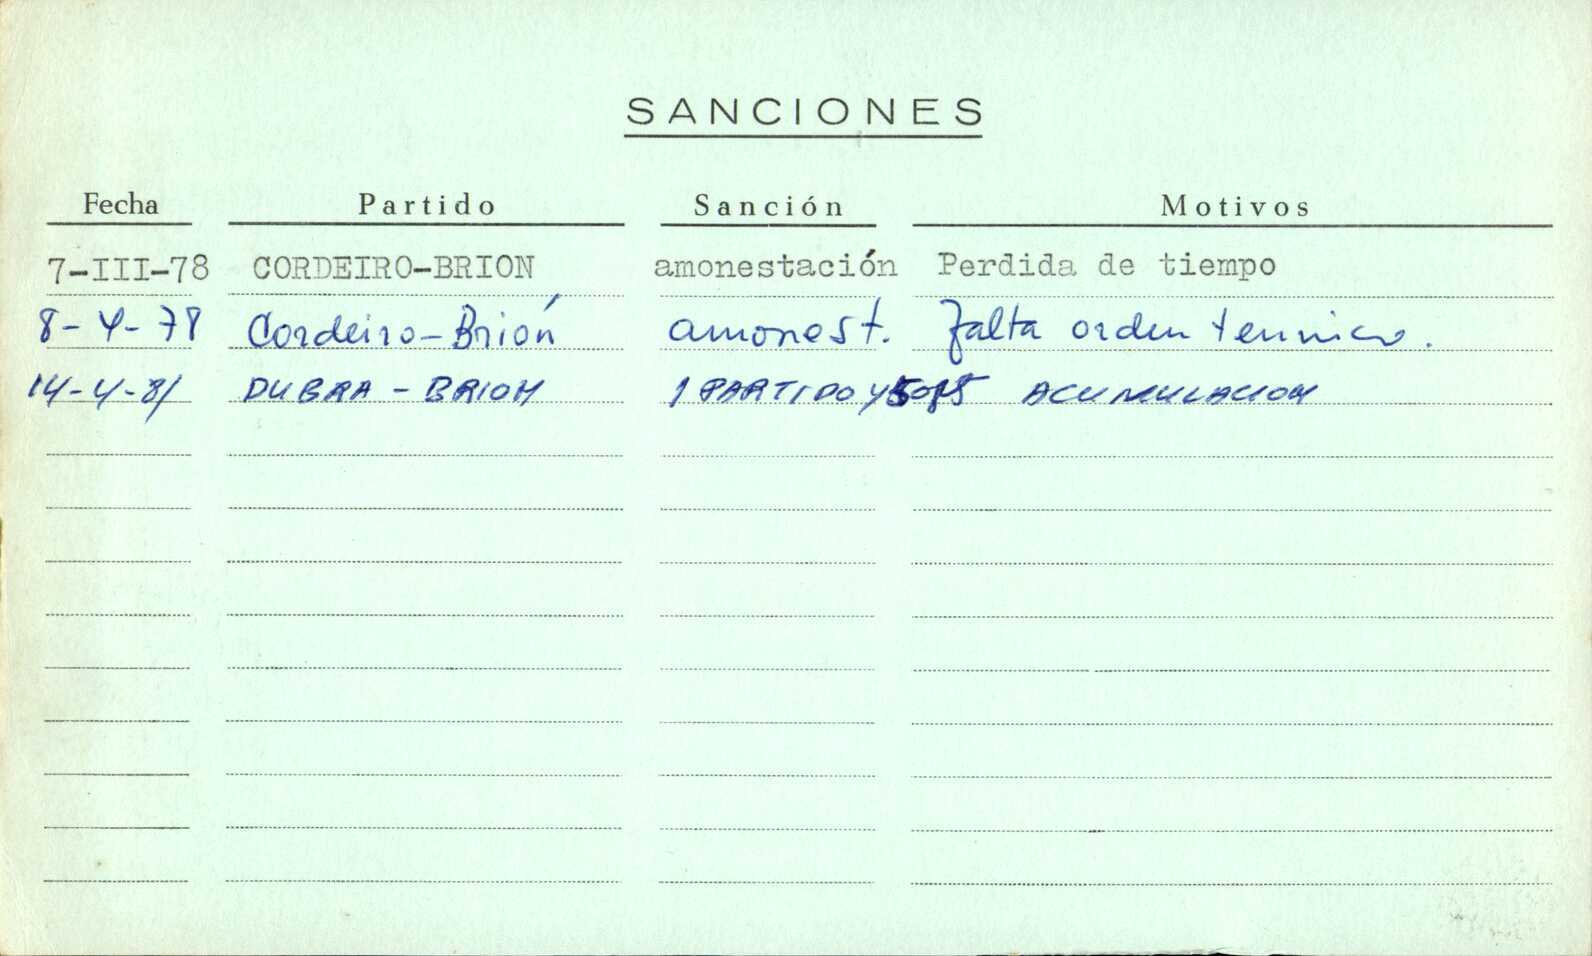 SANCIONES
Fecha Partido Sanción Motivos
7-III-78 CORDEIRO-BRION amonestación Perdida de tiempo
8-4-78 Cordeiro-Brión amonest. Falta orden tecnico.
14-4-81 DUBRA - BRION 1 PARTIDO Y 50 PTS ACUMULACION